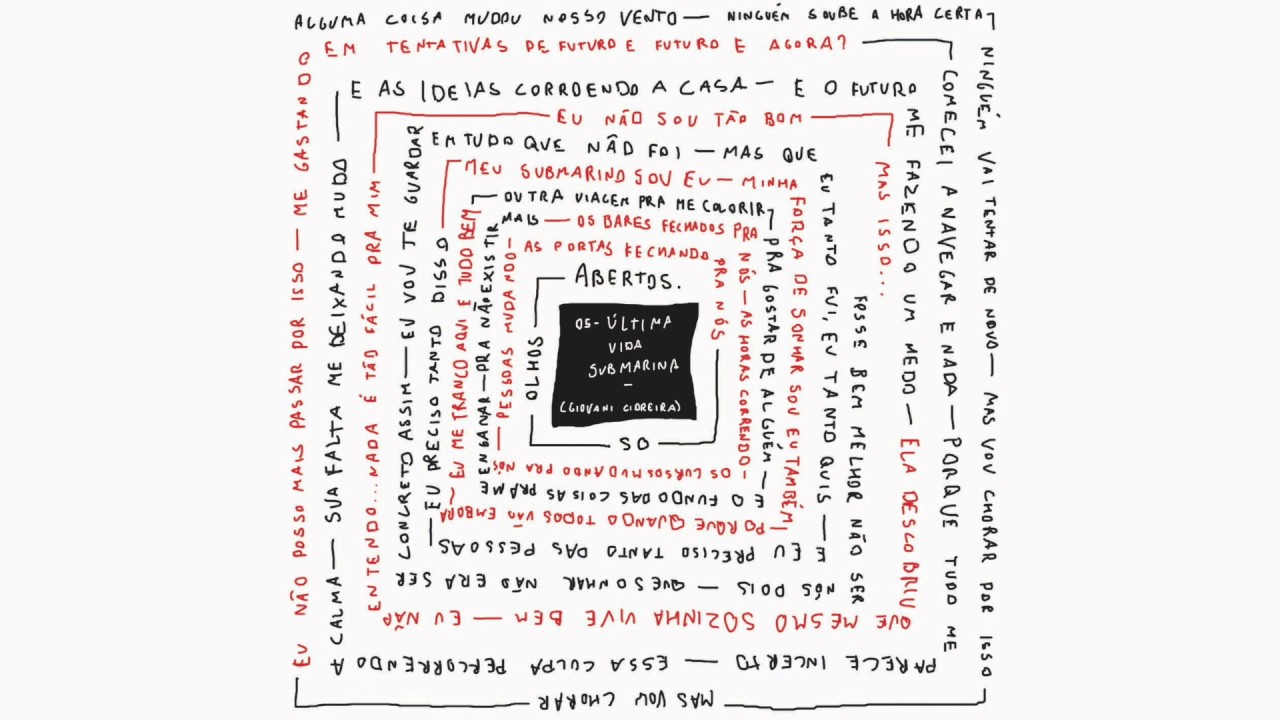 ALGUMA COISA MUDOU NOSSO VENTO — NINGUÉM SOUBE A HORA CERTA
NINGUÉM VAI TENTAR DE NOVO — MAS VOU CHORAR POR ISSO
MAS VOU CHORAR
EU NÃO POSSO MAIS PASSAR POR ISSO — ME GASTANDO
EM TENTATIVAS DE FUTURO E FUTURO E AGORA?
COMECEI A NAVEGAR E NADA — PORQUE TUDO ME
PARECE INCERTO — ESSA CULPA PERCORRENDO A
CALMA — SUA FALTA ME DEIXANDO MUDO
E AS IDEIAS CORROENDO A CASA — E O FUTURO
ME FAZENDO UM MEDO — ELA DESCOBRIU
QUE MESMO SOZINHA VIVE BEM — EU NÃO
ENTENDO... NADA É TÃO FÁCIL PRA MIM
EU NÃO SOU TÃO BOM
MAS ISSO...
FOSSE BEM MELHOR NÃO SER
NÓS DOIS — QUE SONHAR NÃO ERA SER
CONCRETO ASSIM — EU VOU TE GUARDAR
EM TUDO QUE NÃO FOI — MAS QUE
EU TANTO FUI, EU TANTO QUIS —
E EU PRECISO TANTO DAS PESSOAS
EU PRECISO TANTO DISSO
MEU SUBMARINO SOU EU — MINHA
FORÇA DE SONHAR SOU EU TAMBÉM
— PORQUE QUANDO TODOS VÃO EMBORA
EU ME TRANCO AQUI E TUDO BEM
OUTRA VIAGEM PRA ME COLORIR
PRA GOSTAR DE ALGUÉM —
E O FUNDO DAS COISAS PRA ME
ENGANAR — PRA NÃO EXISTIR
MAIS — OS BARES FECHADOS PRA
NÓS — AS HORAS CORRENDO -
OS CURSOS MUDANDO PRA NÓS
— PESSOAS MUDANDO -
AS PORTAS FECHANDO
PRA NÓS
SO
OLHOS
ABERTOS.
05- ÚLTIMA
VIDA
SUBMARINA
–
(GIOVANI CIDREIRA)